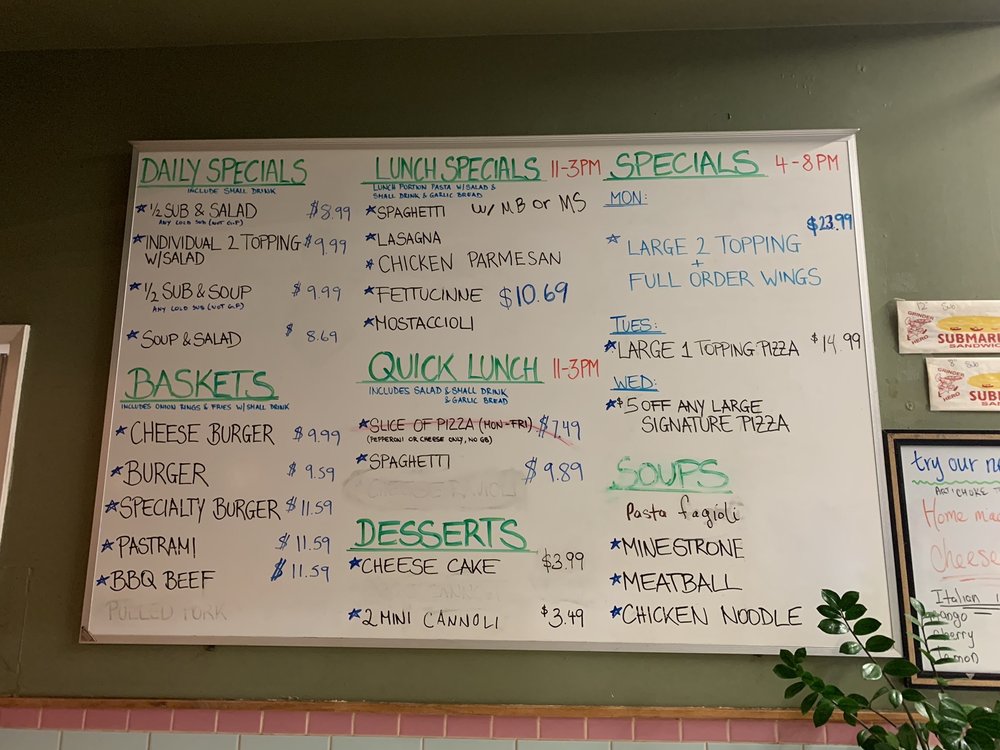 DAILY SPECIALS
INCLUDE SMALL DRINK
★ 1/2 SUB & SALAD $8.99
ANY COLD SUB (NOT G.F)
★ INDIVIDUAL 2 TOPPING $9.99
W/SALAD
★ 1/2 SUB & SOUP $9.99
ANY COLD SUB (NOT G.F)
★ SOUP & SALAD $8.69
BASKETS
INCLUDES ONION RINGS & FRIES W/SMALL DRINK
★ CHEESE BURGER $9.99
★ BURGER $9.59
★ SPECIALTY BURGER $11.59
★ PASTRAMI $11.59
★ BBQ BEEF $11.59
PULLED PORK
LUNCH SPECIALS 11-3PM
LUNCH PORTION PASTA W/SALAD &
SMALL DRINK & GARLIC BREAD
★ SPAGHETTI W/ MB or MS
★ LASAGNA
★ CHICKEN PARMESAN
★ FETTUCINNE $10.69
★ MOSTACCIOLI
QUICK LUNCH 11-3PM
INCLUDES SALAD & SMALL DRINK
& GARLIC BREAD
★ SLICE OF PIZZA (MON-FRI) $7.49
(PEPPERONI OR CHEESE ONLY, NO GB)
★ SPAGHETTI $9.89
DESSERTS
★ CHEESE CAKE $3.99
★ 2 MINI CANNOLI $3.49
SPECIALS 4-8PM
MON:
$23.99
★ LARGE 2 TOPPING
+
FULL ORDER WINGS
TUES:
★ LARGE 1 TOPPING PIZZA $14.99
WED:
★ $5 OFF ANY LARGE
SIGNATURE PIZZA
SOUPS
Pasta fagioli
★ MINESTRONE
★ MEATBALL
★ CHICKEN NOODLE
12" Sub
GRINDER
HERO
SUBMAR
SANDWIC
8" Sub
GRINDER
HERO
SUB
SAN
try our n
ARTICHOKE
Home mad
Cheese
Italian
mango
cherry
lemon